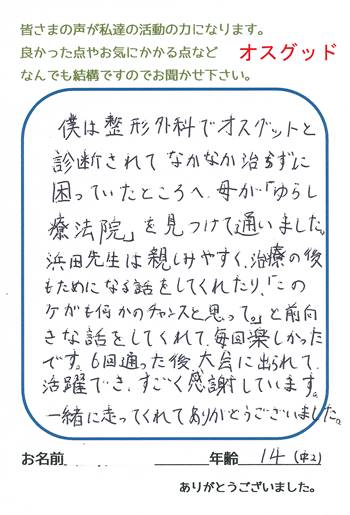 皆さまの声が私達の活動の力になります。
良かった点やお気にかかる点など
オスグッド
なんでも結構ですのでお聞かせ下さい。
僕は整形外科でオスグットと
診断されてなかなか治らずに
困っていたところへ、母が「ゆらし
療法院」を見つけて通いました。
浜田先生は親しみやすく、治療の後
もためになる話をしてくれたり、「この
ケガも何かのチャンスと思って。」と前向
きな話をしてくれて、毎回楽しかった
です。6回通った後、大会に出られて
活躍でき、すごく感謝しています。
一緒に走ってくれてありがとうございました。
お名前 年齢 14(中2)
ありがとうございました。